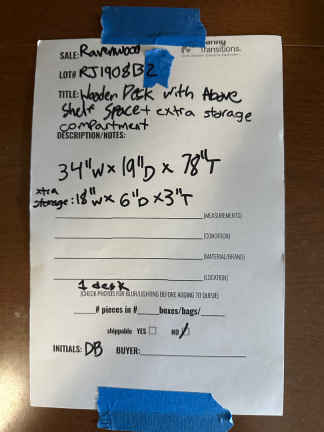 SALE: Ravenwood
Transitions.
LOT# RJ1908132
TITLE: Wooden Desk with Above
Shelf Space + extra storage
compartment
DESCRIPTION/NOTES:
34"W x 19"D x 78"T
xtra
storage: 18"W x 6"D x 3"T
(MEASUREMENTS)
(CONDITION)
(MATERIAL/BRAND)
(LOCATION)
1 desk
(CHECK PHOTOS FOR BLUR/LIGHTING BEFORE ADDING TO QUEUE)
# pieces in # boxes/bags/
shippable YES NO
INITIALS: DB BUYER: